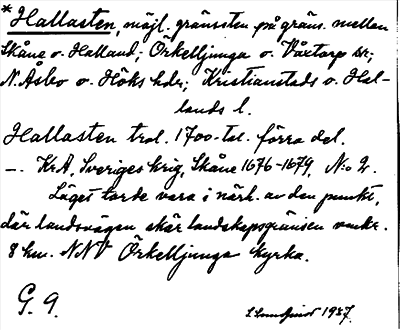 * Hallasten, möjl. gränssten på gräns. mellan
Skåne o. Halland; Örkelljunga o. Våxtorp sn;
N. Asbo o. Höks hdr; Kristianstads o. Hal-
lands l.
Hallasten trol. 1700-tal. förra del.
–. KrA, Sveriges krig, Skåne 1676–1679, N:o 2.
Läget torde vara i närh. av den punkt,
där landsvägen skär landskapsgränsen omkr.
8 km. NNV Örkelljunga kyrka.
G. 9.
1937.